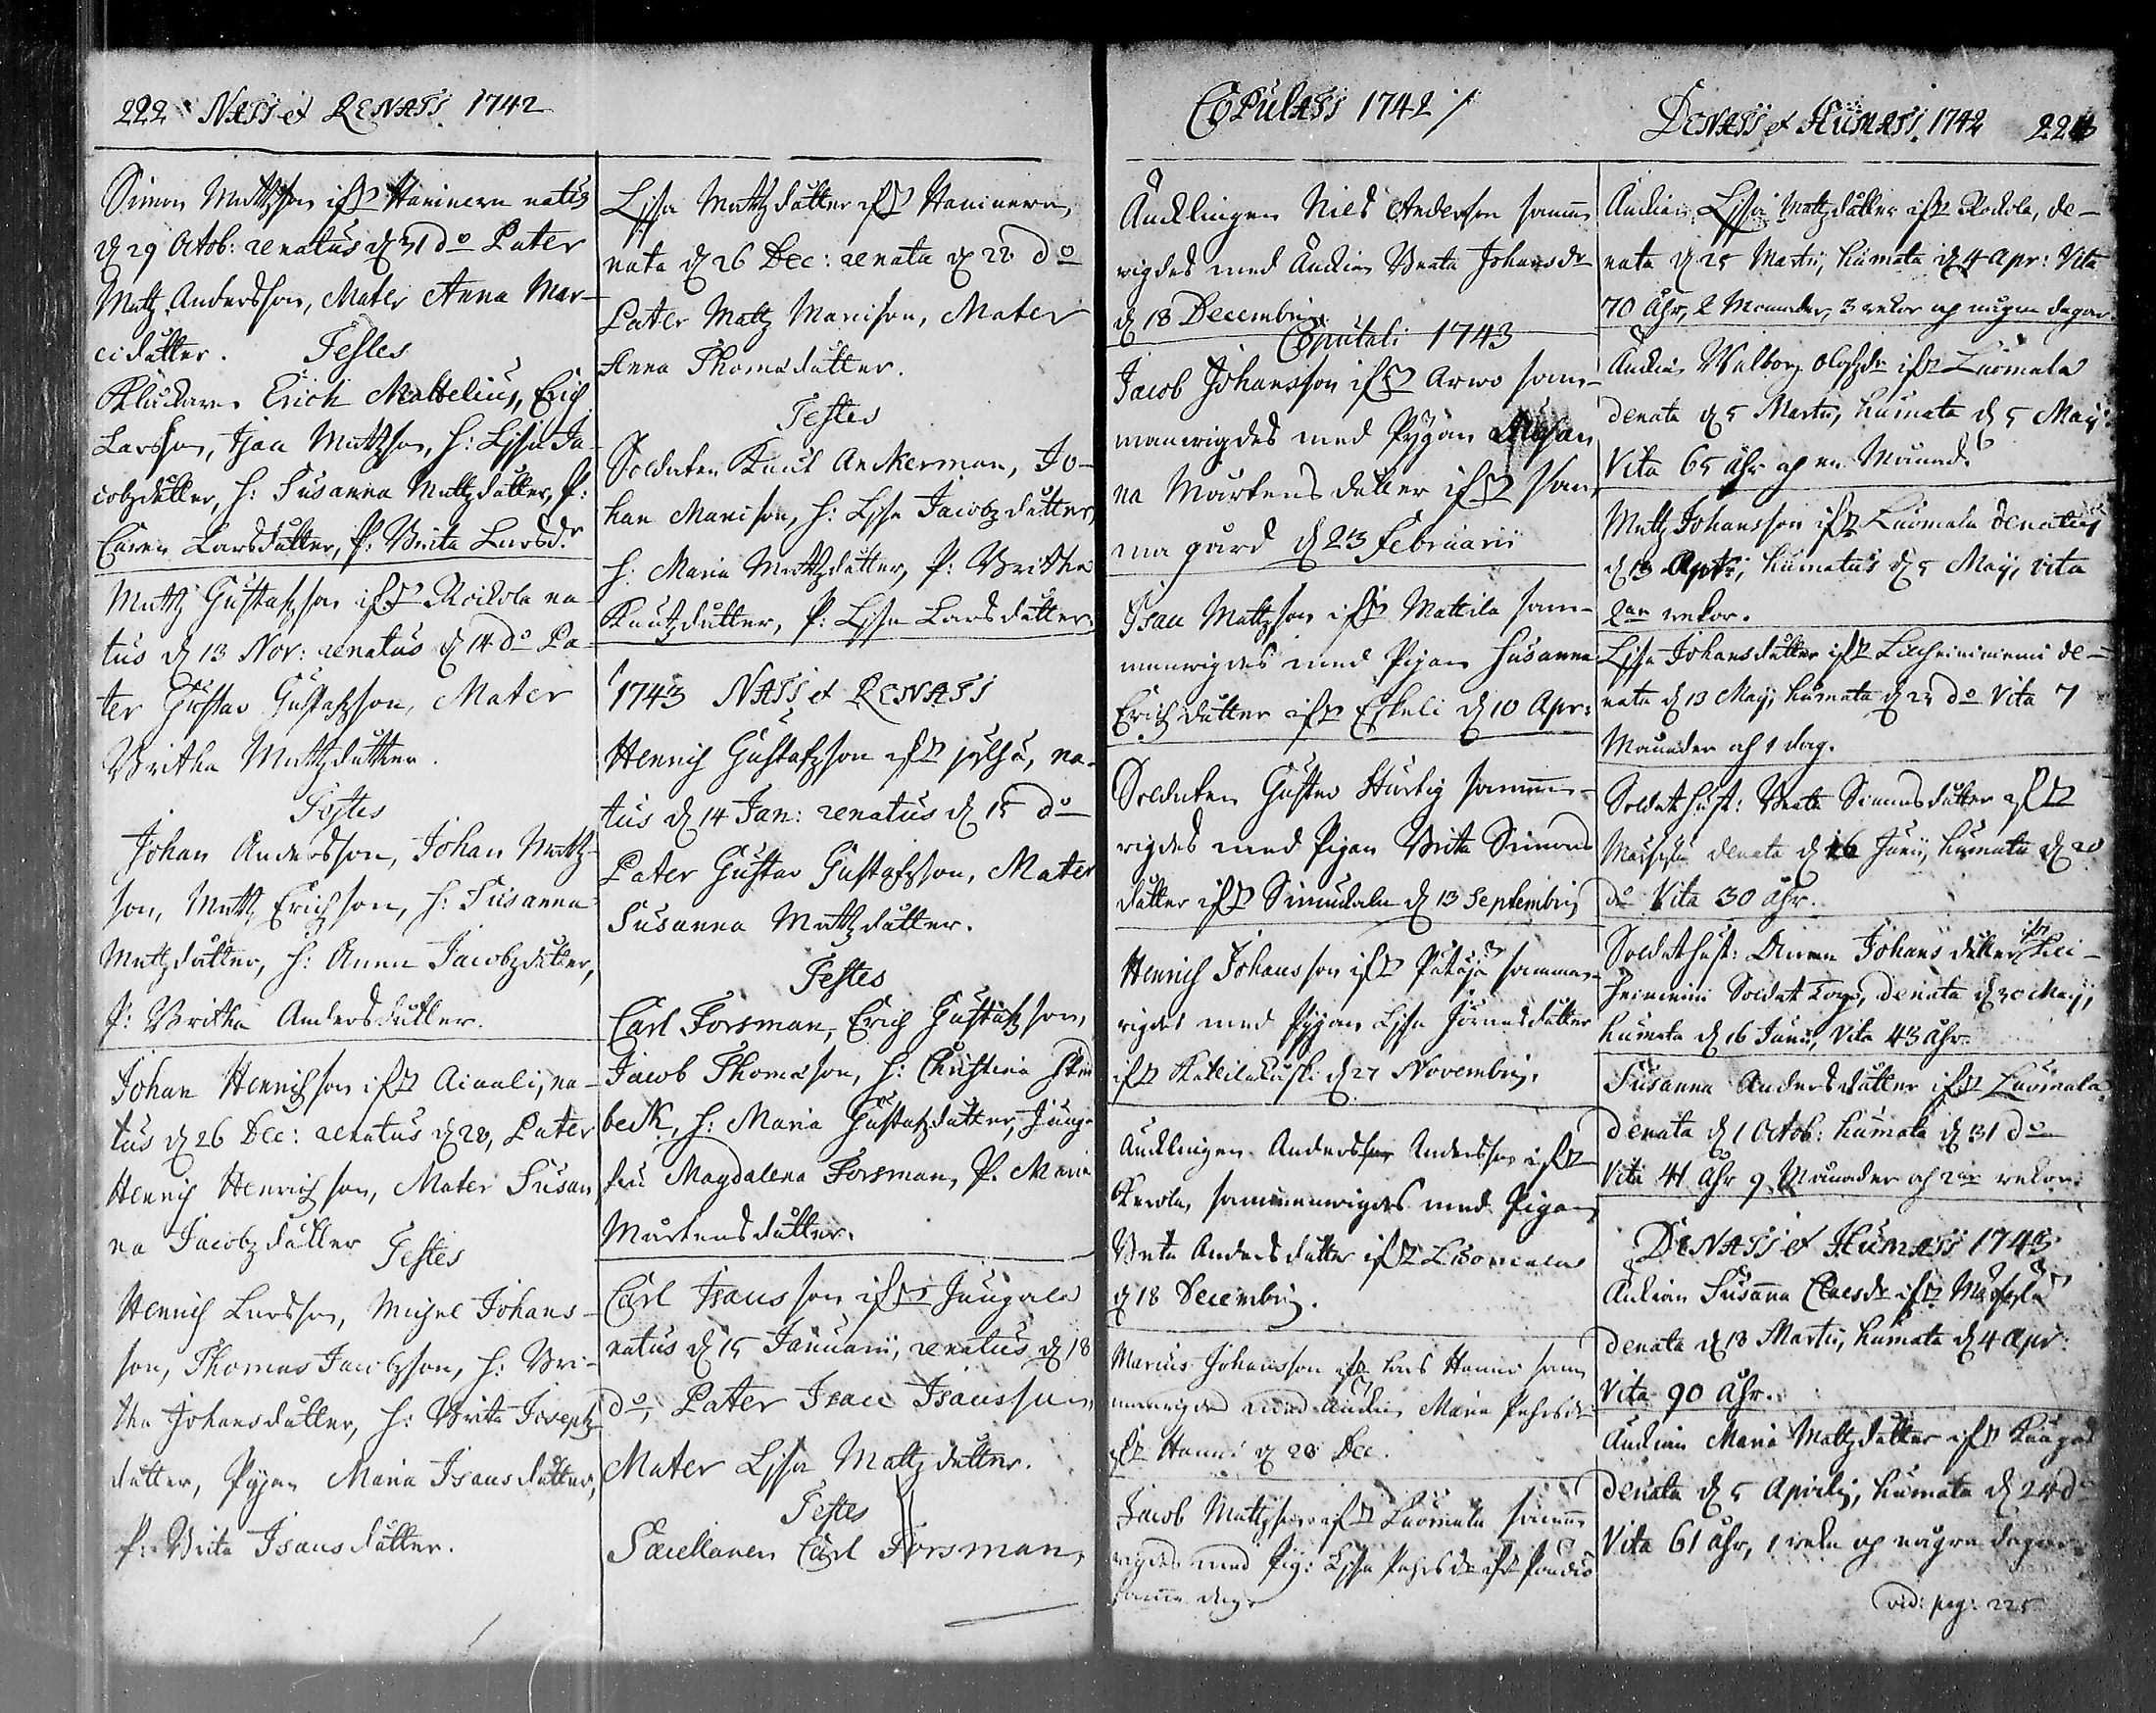 222 NATI et RENATI 1742
Simon Mattzson ifr Haninern natus
d 29 Octob: renatus d 31 do Pater
Mattz Andersson, Mater Anna Mar-
cidåtter. Testes
Kluckarn Erich Mattelius, Erich
Larsson, Isaac Mattzson, h: Lissa Ja-
cobzdåtter, h: Susanna Mattzdåtter, P:
Caren Larsdåtter, P: Brita Larsdr
Mattz Gustafzson ifr Rockola na-
tus d 13 Nov: renatus d 14 do Pa-
ter Gustav Gustafzson, Mater
Britha Mattzdåtter.
Testes
Johan Andersson, Johan Mattz-
son, Mattz Erichson, h: Susanna
Mattzdåtter, h: Anna Jacobzdåtter,
P: Britha Andersdåtter.
Johan Henrichson ifr Aiaali, na-
tus d 26 Dec: renatus d 28, Pater
Henrich Henrichson, Mater Susan
na Jacobzdåtter Testes
Henrich Larsson, Michel Johans-
son, Thomas Jacobzson, h: Bri-
tha Johansdåtter, h: Brita Josephz
dåtter, Pigan Maria Isaacsdåtter,
P: Brita Isaacsdåtter.
Lissa Mattzdåtter ifr Haninern,
nata d 26 Dec: renata d 28 do
Pater Mattz Marcison, Mater
Anna Thomædåtter.
Testes
Soldaten Knut Anckerman, Jo-
han Marcison, h: Lissa Jacobzdåtter,
h: Maria Mattzdåtter, P: Britha
Knutzdåtter, P: Lissa Larsdåtter.
1743 NATI et RENATI
Henrich Gustafzson ifr Jylhä, na-
tus d 14 Jan: renatus d 15 do
Pater Gustav Gustafzson, Mater
Susanna Mattzdåtter.
Testes
Carl Forsman, Erich Gustafzson,
Jacob Thomæson, h: Christina
beck, h: Maria Gustafzdåtter, Jung-
fru Magdalena Forsman, P. Maria
Mårtensdåtter.
Carl Isaacsson ifr Jungala
natus d 15 Januarii, renatus d 18
do, Pater Isaac Isaacsson
Mater Lissa Mattzdåtter.
Testes
Carl Forsman,
COPULATI 1742
Änklingen Nils Anderson samm
wigdes med Änkian Beata Johansdr
d 18 Decembris.
Coputati 1743
Jacob Johansson ifr Arwo sam-
manwigdes med Pygan Susan
na Mårtensdåtter ifr sam-
ma gård d 23 Februarii
Isaac Mattzson ifr Mattila sam-
manwigdes med Pigan Susanna
Erichsdåtter ifr Eskeli d 10 Apr:
Soldaten Gustav Hurtig samman-
wigdes med Pigan Brita Simons
dåtter ifr Simudala d 13 Septembris
Henrich Johansson ifr Pätäjä samman-
wigdes med Pygan Lissa Jöransdåtter
ifr d 27 Novembris.
Änklingen Anders Andersson ifr
Kerola, sammanwigdes med Pigan
Brita Andersdåtter ifr Luomala
d 18 Decembris.
Marcus Johansson ifr Hannu sam
manwigdes med Änkian Maria Pehrsdr
ifr Hannu d 28 Dec.
Jacob Mattzson ifr Luomala samm
wigdes med Pig: Lissa Pehrsdr ifr
samma dag.
DENATI et HUMATI 1742 223
Änkian Lissa Mattzdåtter ifr Rockola, de-
nata d 25 Martii, humata d 4 Apr: Vita
70 Åhr, 2 Månader, 3 wekor och någre dagar.
Änkian Walborg Olofzdr ifr Luomala
denata d 5 Martii, humata d 5 Maij
Vita 65 åhr och en Månad.
Mattz Johansson ifr Luomala denatus
d 13 Apr:, humatus d 5 Maij, vita
2ne wekor.
Lissa Johansdåtter ifr de-
nata d 13 Maij, humata d 22 do Vita 7
Månader och 1 dag.
Soldat hust: Beata Simonsdåtter ifr
denata d 16 Junii, humata d 20
do Vita 30 åhr.
Soldat hust: Anna Johansdåtter ifr
Soldat denata d 30 Maij,
humata d 16 Junii, Vita 43 åhr.
Susanna Andersdåtter ifr Luomala
denata d 1 Octob: humata d 31 do
Vita 41 åhr 9 Månader och 2ne wekor.
DENATI et HUMATI 1743
Änkian Susanna Claesdr ifr
denata d 13 Martii, humata d 4 Apr:
Vita 90 Åhr.
Änkian Maria Mattzdåtter ifr
denata d 5 Aprilis, humata d 24 do
Vita 61 åhr, 1 weka och någre dagar.
vid: pag: 225